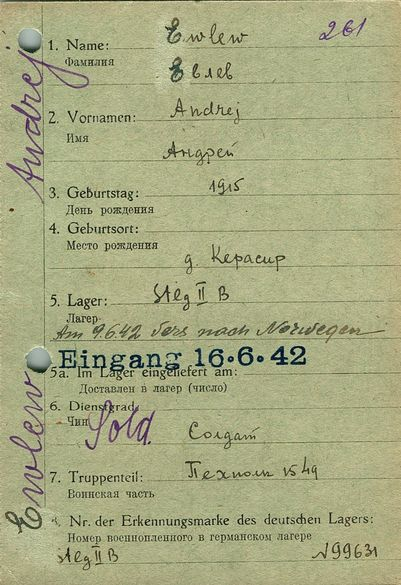 261
Andrej
1. Name: Ewlew
Фамилия Евлев
2. Vornamen: Andrej
Имя Андрей
3. Geburtstag: 1915
День рождения
4. Geburtsort:
Место рождения
д. Керасир
5. Lager: Stlg II B
Лагерь
Am 9.6.42 vers nach Norwegen
Eingang 16.6.42
5a. Im Lager eingeliefert am:
Доставлен в лагерь (число)
6. Dienstgrad: Sold.
Чин Солдат
7. Truppenteil:
Воинская часть
Ewlew
8. Nr. der Erkennungsmarke des deutschen Lagers:
Номер военнопленного в германском лагере
Stlg II B N 99631